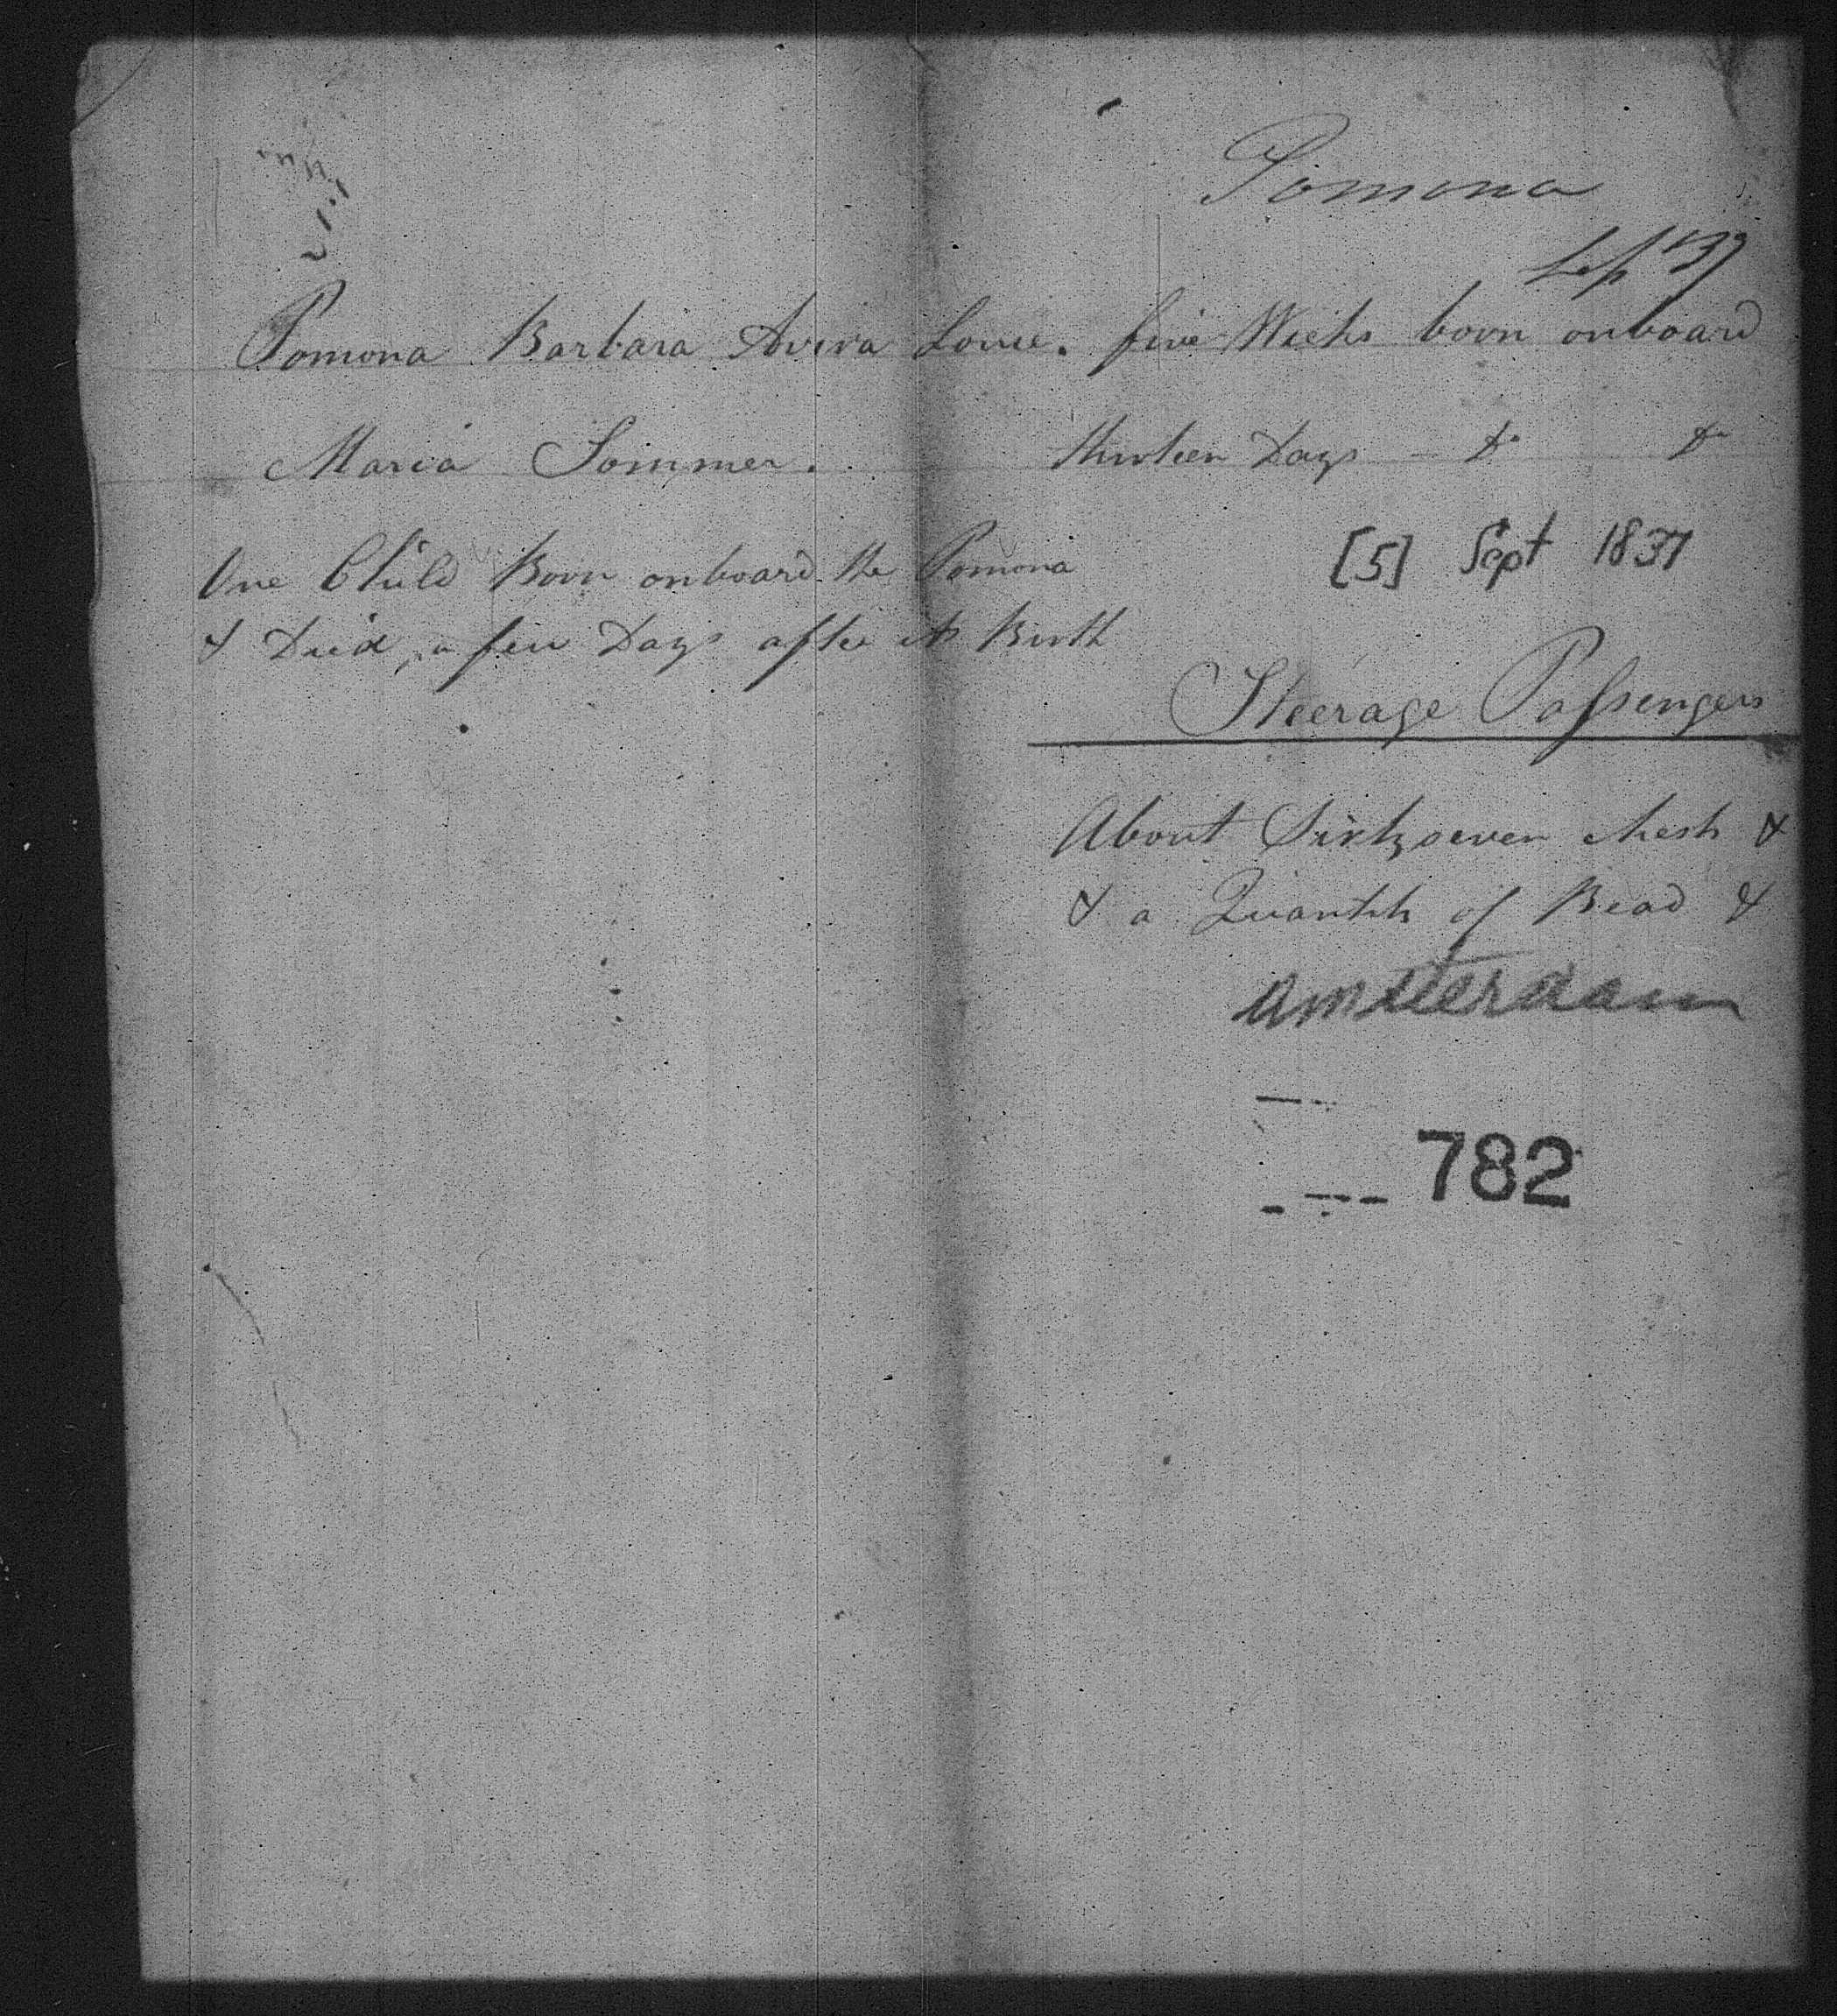 Pomona
Sep 1837
Pomona Barbara Avera Louie. five Weeks born onboard
Maria Sommer. thirteen Days - Do Do
One Child Born onboard the Pomona
[5] Sept 1837
& Died, a few Days after its Birth
Steerage Passengers
About Sixtyseven Chests &
& a Quantity of Bead &
Amsterdam
782